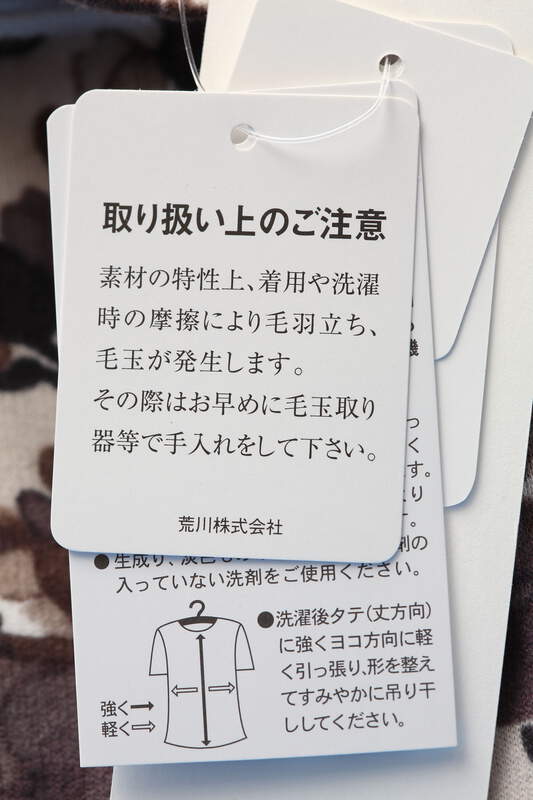 取り扱い上のご注意
素材の特性上、着用や洗濯
時の摩擦により毛羽立ち、
毛玉が発生します。
その際はお早めに毛玉取り
器等で手入れをして下さい。
荒川株式会社
機
っ
く
す。
より
す。
●生成り、淡色もの
剤の
入っていない洗剤をご使用ください。
●洗濯後タテ(丈方向)
に強くヨコ方向に軽
く引っ張り、形を整え
てすみやかに吊り干
ししてください。
強く
軽く